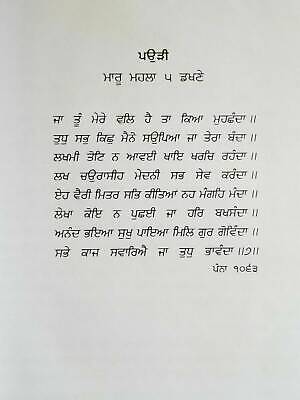 ਪਉੜੀ
ਮਾਰੂ ਮਹਲਾ ੫ ਡਖਣੇ
ਜਾ ਤੂੰ ਮੇਰੇ ਵਲਿ ਹੈ ਤਾ ਕਿਆ ਮੁਹਛੰਦਾ॥
ਤੁਧੁ ਸਭੁ ਕਿਛੁ ਮੈਨੋ ਸਉਪਿਆ ਜਾ ਤੇਰਾ ਬੰਦਾ॥
ਲਖਮੀ ਤੋਟਿ ਨ ਆਵਈ ਖਾਇ ਖਰਚਿ ਰਹੰਦਾ॥
ਲਖ ਚਉਰਾਸੀਹ ਮੇਦਨੀ ਸਭ ਸੇਵ ਕਰੰਦਾ॥
ਏਹ ਵੈਰੀ ਮਿਤਰ ਸਭਿ ਕੀਤਿਆ ਨਹ ਮੰਗਹਿ ਮੰਦਾ॥
ਲੇਖਾ ਕੋਇ ਨ ਪੁਛਈ ਜਾ ਹਰਿ ਬਖਸੰਦਾ॥
ਅਨੰਦ ਭਇਆ ਸੁਖੁ ਪਾਇਆ ਮਿਲਿ ਗੁਰ ਗੋਵਿੰਦਾ॥
ਸਭੇ ਕਾਜ ਸਵਾਰਿਐ ਜਾ ਤੁਧੁ ਭਾਵੰਦਾ॥੭॥
ਪੰਨਾ ੧੦੬੩